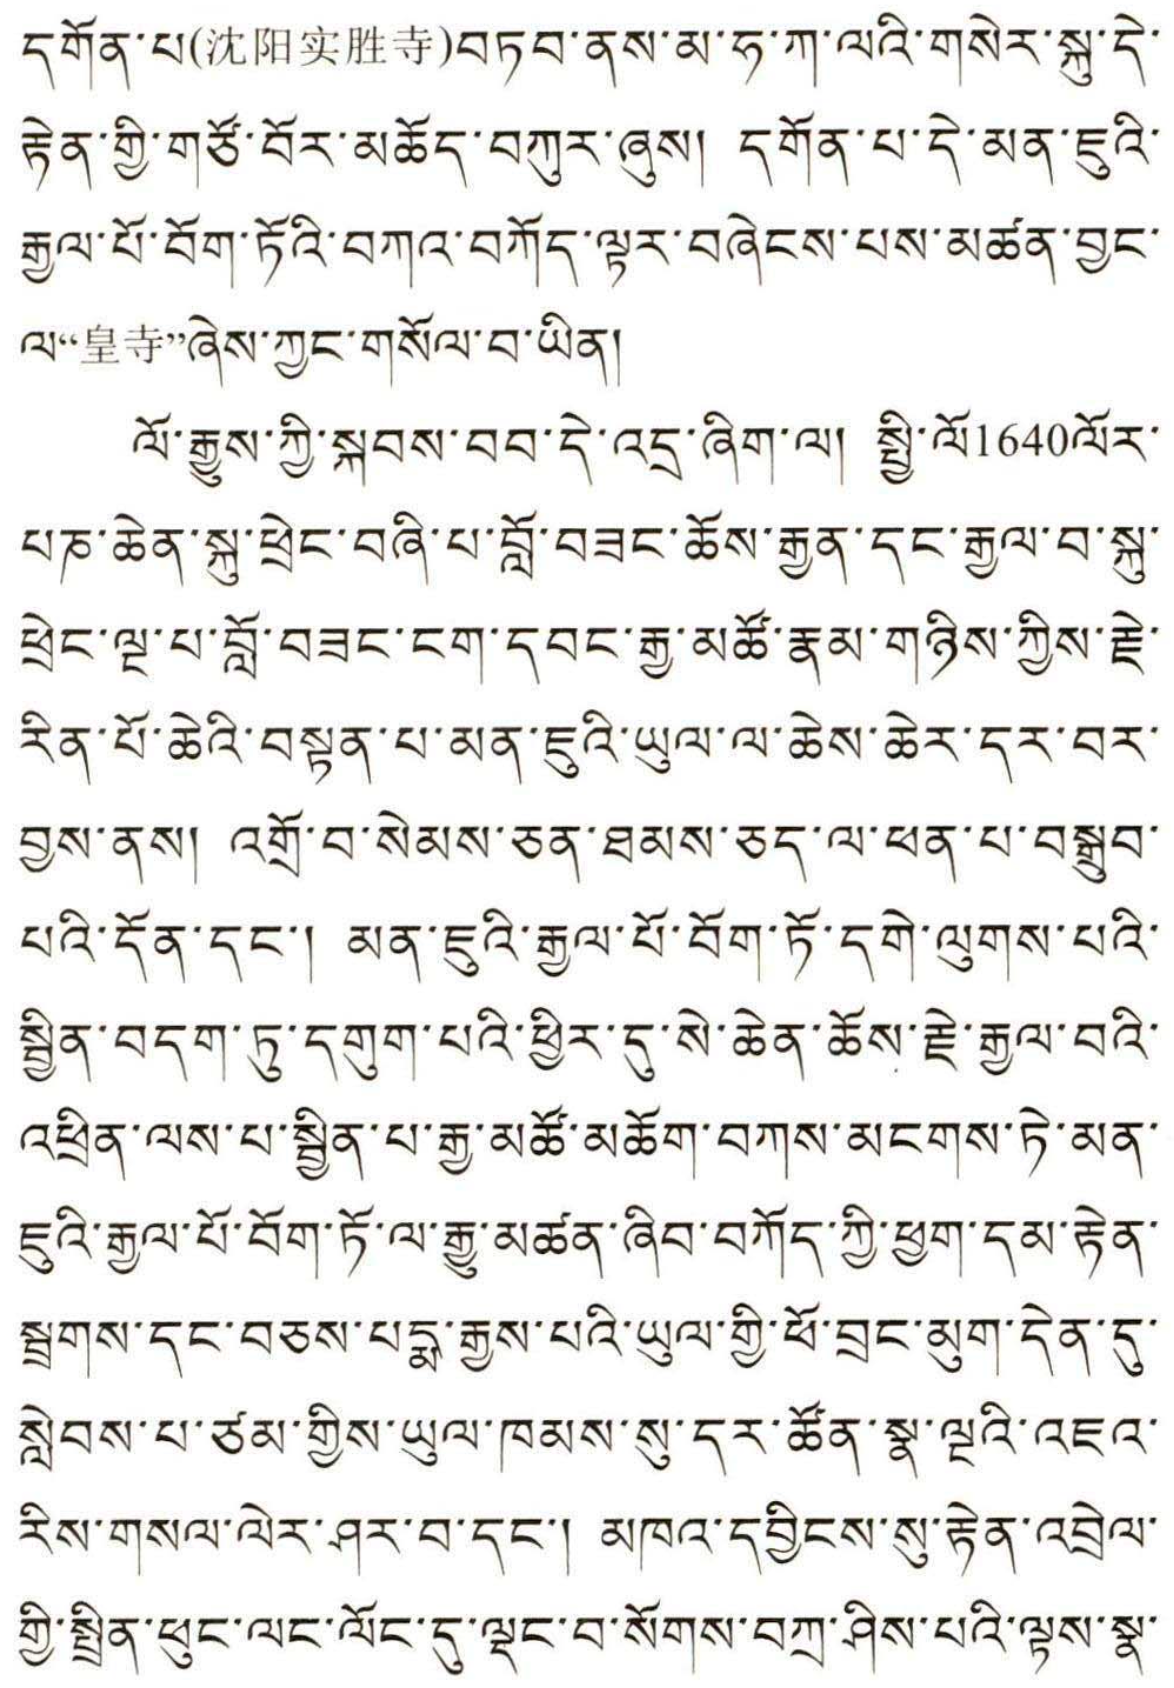 དགོན་པ(沈阳实胜寺)བཏབ་ནས་མ་ཧ་ཀ་ལའི་གསེར་སྐུ་དེ་
རྟེན་གྱི་གཙོ་བོར་མཆོད་བཀུར་ཞུས། དགོན་པ་དེ་མན་ཇུའི་
རྒྱལ་པོ་བོག་ཏོའི་བཀའ་བཀོད་ལྟར་བཞེངས་པས་མཚན་བྱང་
ལ“皇寺”ཞེས་ཀྱང་གསོལ་བ་ཡིན།
ལོ་རྒྱུས་ཀྱི་སྐབས་བབ་དེ་འདྲ་ཞིག་ལ། སྤྱི་ལོ1640ལོར་
པཎ་ཆེན་སྐུ་ཕྲེང་བཞི་པ་བློ་བཟང་ཆོས་རྒྱན་དང་རྒྱལ་བ་སྐུ་
ཕྲེང་ལྔ་པ་བློ་བཟང་ངག་དབང་རྒྱ་མཚོ་རྣམ་གཉིས་ཀྱིས་རྗེ་
རིན་པོ་ཆེའི་བསྟན་པ་མན་ཇུའི་ཡུལ་ལ་ཆེས་ཆེར་དར་བར་
བྱས་ནས། འགྲོ་བ་སེམས་ཅན་ཐམས་ཅད་ལ་ཕན་པ་བསྒྲུབ་
པའི་དོན་དང་། མན་ཇུའི་རྒྱལ་པོ་བོག་ཏོ་དགེ་ལུགས་པའི་
སྦྱིན་བདག་ཏུ་དགུག་པའི་ཕྱིར་དུ་སེ་ཆེན་ཆོས་རྗེ་རྒྱལ་བའི་
འཕྲིན་ལས་པ་སྦྱིན་པ་རྒྱ་མཚོ་མཆོག་བཀས་མངགས་ཏེ་མན་
ཇུའི་རྒྱལ་པོ་བོག་ཏོ་ལ་རྒྱུ་མཚན་ཞིབ་བཀོད་ཀྱི་ཕྱག་དམ་རྟེན་
སྦྲགས་དང་བཅས་པདྨ་རྒྱས་པའི་ཡུལ་གྱི་ཕོ་བྲང་མུག་དེན་དུ་
སླེབས་པ་ཙམ་གྱིས་ཡུལ་ཁམས་སུ་དར་ཚོན་སྣ་ལྔའི་འཇའ་
རིས་གསལ་ལེར་ཤར་བ་དང་། མཁའ་དབྱིངས་སུ་རྟེན་འབྲེལ་
གྱི་སྤྲིན་ཕུང་ལང་ལོང་དུ་ལྡང་བ་སོགས་བཀྲ་ཤིས་པའི་ལྟས་སྣ་